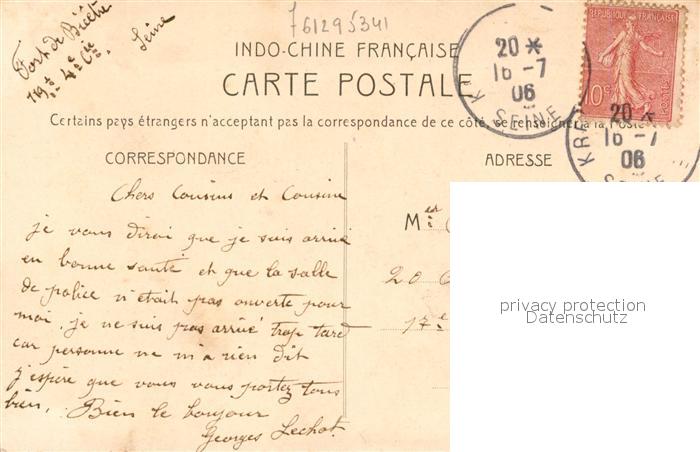 Fort de Bicêtre
119e 4e Cie
Seine
761295341
INDO-CHINE FRANÇAISE
CARTE POSTALE
Certains pays étrangers n'acceptant pas la correspondance de ce côté, se renseigner à la Poste
CORRESPONDANCE
ADRESSE
RÉPUBLIQUE FRANÇAISE
10c
POSTES
20 *
16 - 7
06
SEINE
KRE
20 *
16 - 7
06
SEINE
Chers Cousins et Cousine
je vous dirai que je suis arrivé
en bonne santé et que la salle
de police n'était pas ouverte pour
moi, je ne suis pas arrivé trop tard
car personne ne m'a rien dit
j'espère que vous vous portez tous
bien, Bien le bonjour
Georges Lechot.
M
20
17e
privacy protection
Datenschutz